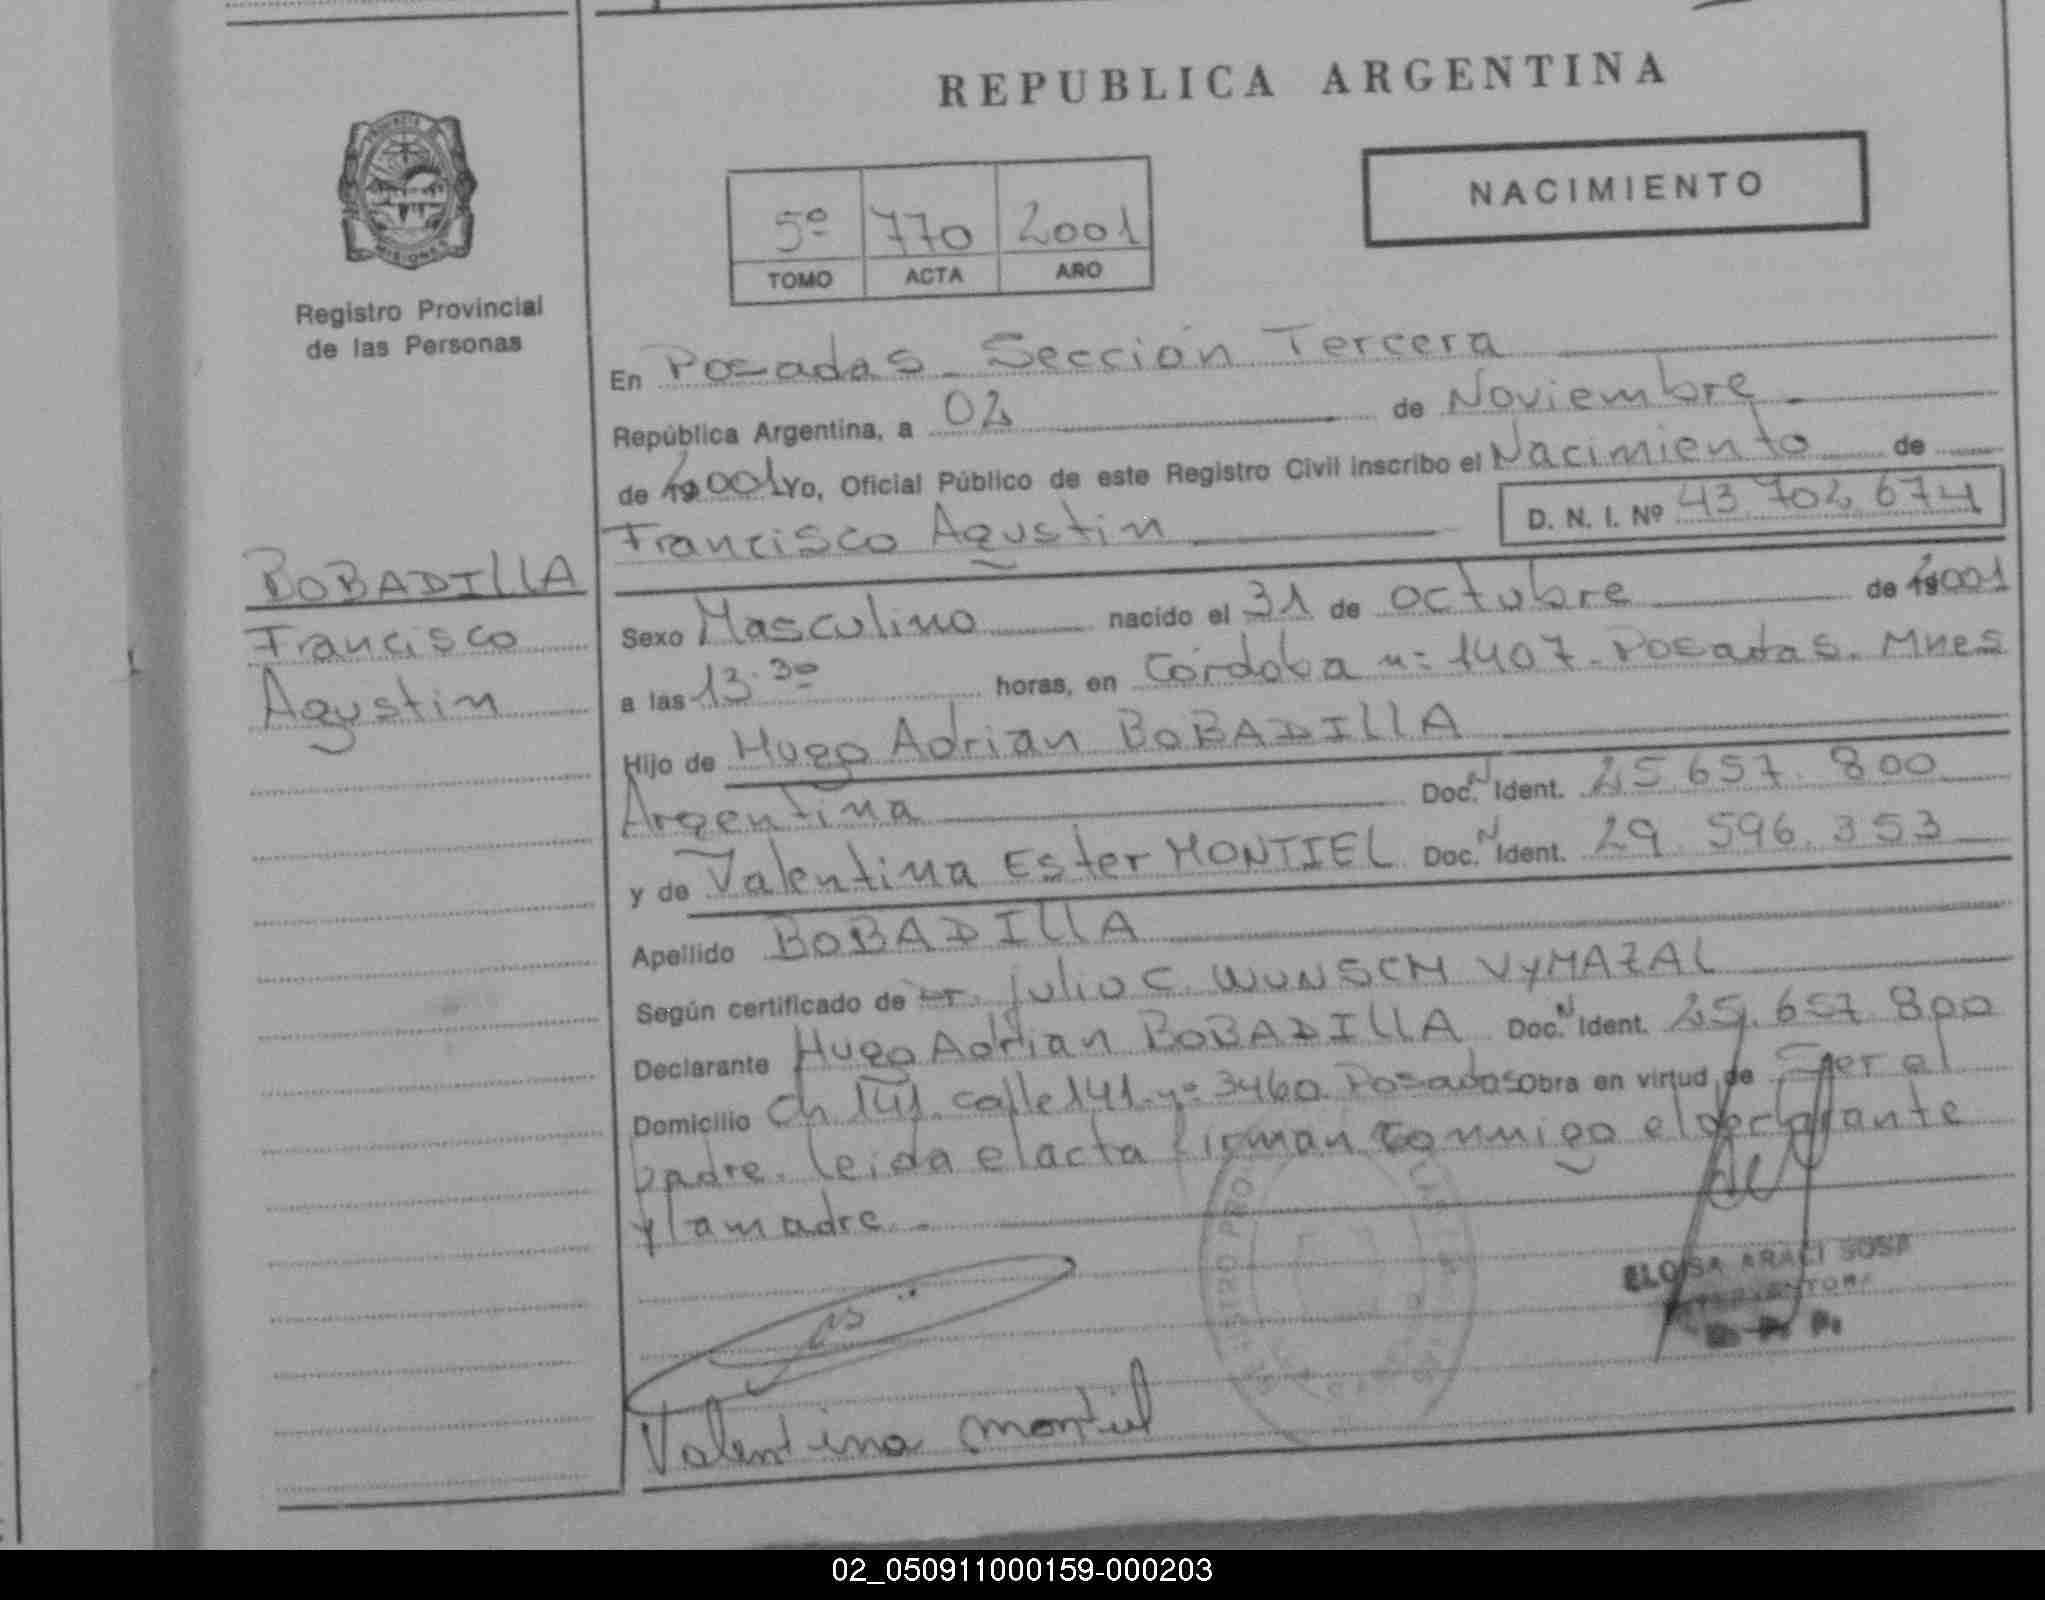 REPUBLICA ARGENTINA
NACIMIENTO
5º 770 2001
TOMO ACTA AÑO
Registro Provincial
de las Personas
BOBADILLA
Francisco
Agustin
En Posadas - Sección Tercera
República Argentina, a 02 de Noviembre
de 2001 Yo, Oficial Público de este Registro Civil inscribo el Nacimiento de
Francisco Agustin D. N. I. Nº 43.702.674
Sexo Masculino nacido el 31 de octubre de 2001
a las 13.30 horas, en Córdoba nº 1407. Posadas. Mnes
Hijo de Hugo Adrian BOBADILLA
Argentina Doc. N Ident. 25.657.800
y de Valentina Ester MONTIEL Doc. N Ident. 29.596.353
Apellido BOBADILLA
Según certificado de Dr. Julio C. WUNSCH VYMAZAL
Declarante Hugo Adrian BOBADILLA Doc. N Ident. 25.657.800
Domicilio Ch 141. calle 141. nº 3460. Posadas Obra en virtud de Ser el
padre. leida el acta firman conmigo el declarante
y la madre.
ELOISA ARACI SOSA
Valentina Montiel
02_050911000159-000203